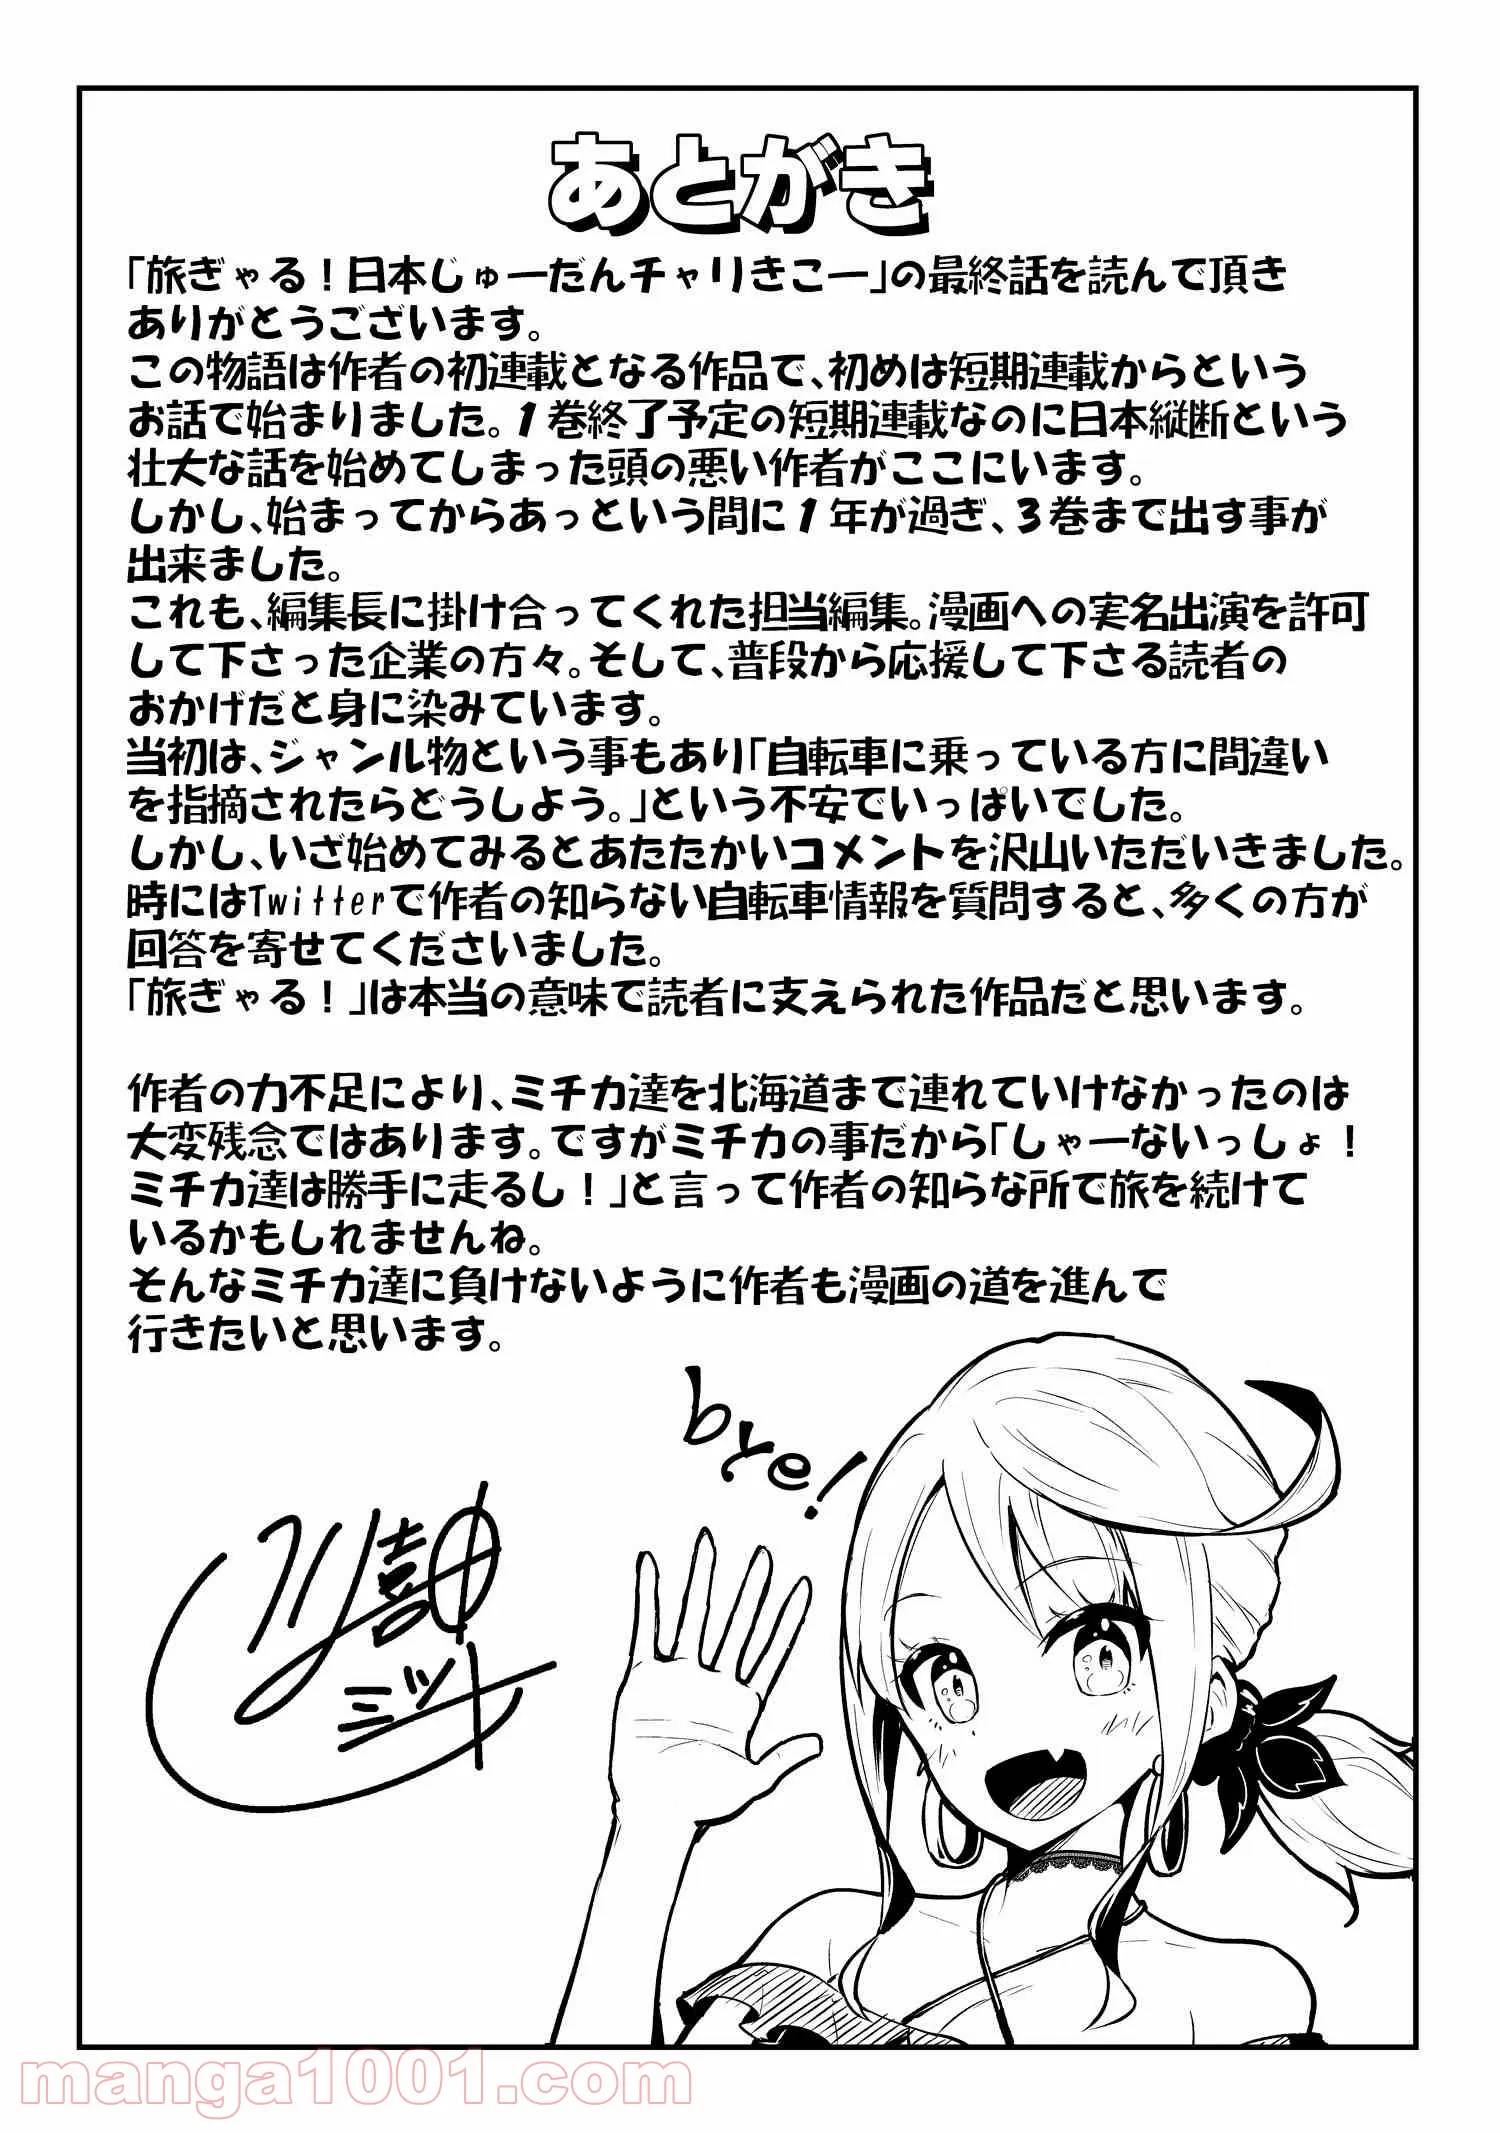 あとがき
「旅ぎゃる！日本じゅーだんチャりきこー」の最終話を読んで頂き
ありがとうございます。
この物語は作者の初連載となる作品で、初めは短期連載からという
お話で始まりました。1巻終了予定の短期連載なのに日本縦断という
壮大な話を始めてしまった頭の悪い作者がここにいます。
しかし、始まってからあっという間に1年が過ぎ、3巻まで出す事が
出来ました。
これも、編集長に掛け合ってくれた担当編集。漫画への実名出演を許可
して下さった企業の方々。そして、普段から応援して下さる読者の
おかげだと身に染みています。
当初は、ジャンル物という事もあり「自転車に乗っている方に間違い
を指摘されたらどうしよう。」という不安でいっぱいでした。
しかし、いざ始めてみるとあたたかいコメントを沢山いただいきました。
時にはTwitterで作者の知らない自転車情報を質問すると、多くの方が
回答を寄せてくださいました。
「旅ぎゃる！」は本当の意味で読者に支えられた作品だと思います。
作者の力不足により、ミチカ達を北海道まで連れていけなかったのは
大変残念ではあります。ですがミチカの事だから「しゃーないっしょ！
ミチカ達は勝手に走るし！」と言って作者の知らな所で旅を続けて
いるかもしれませんね。
そんなミチカ達に負けないように作者も漫画の道を進んで
行きたいと思います。
bye!
manga1001.com